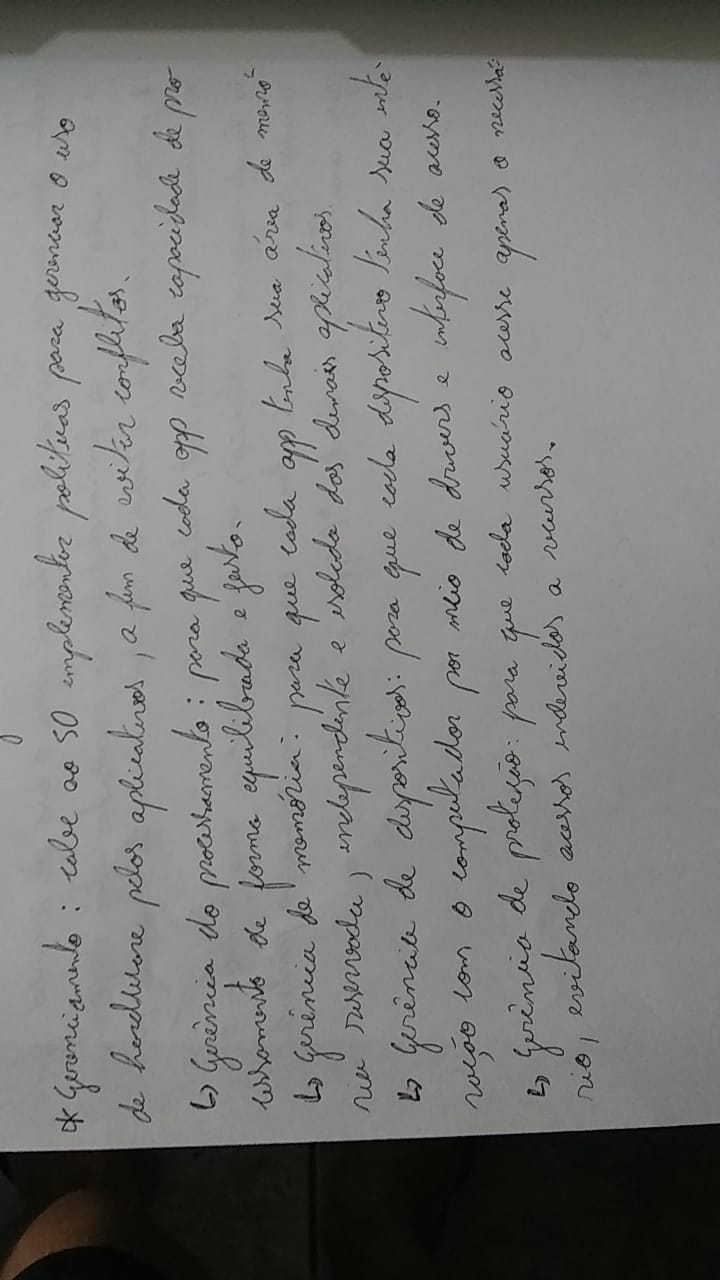 * Gerenciamento : cabe ao SO implementar políticas para gerenciar o uso
de hardware pelos aplicativos, a fim de evitar conflitos.
↳ Gerência do processamento : para que cada app receba capacidade de pro-
cessamento de forma equilibrada e justo.
↳ Gerência de memória : para que cada app tenha sua área de memó-
ria reservada, independente e isolada dos demais aplicativos.
↳ Gerência de dispositivos : para que cada dispositivo tenha sua inte-
ração com o computador por meio de drivers e interface de acesso.
↳ Gerência de proteção : para que cada usuário acesse apenas o necessá-
rio, evitando acessos indevidos a recursos.